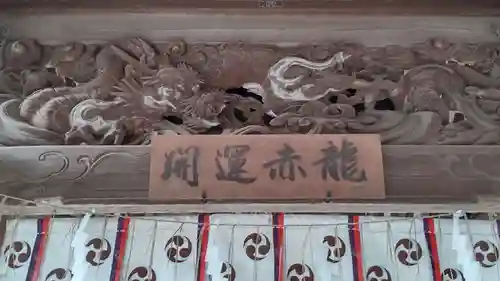 開運赤龍